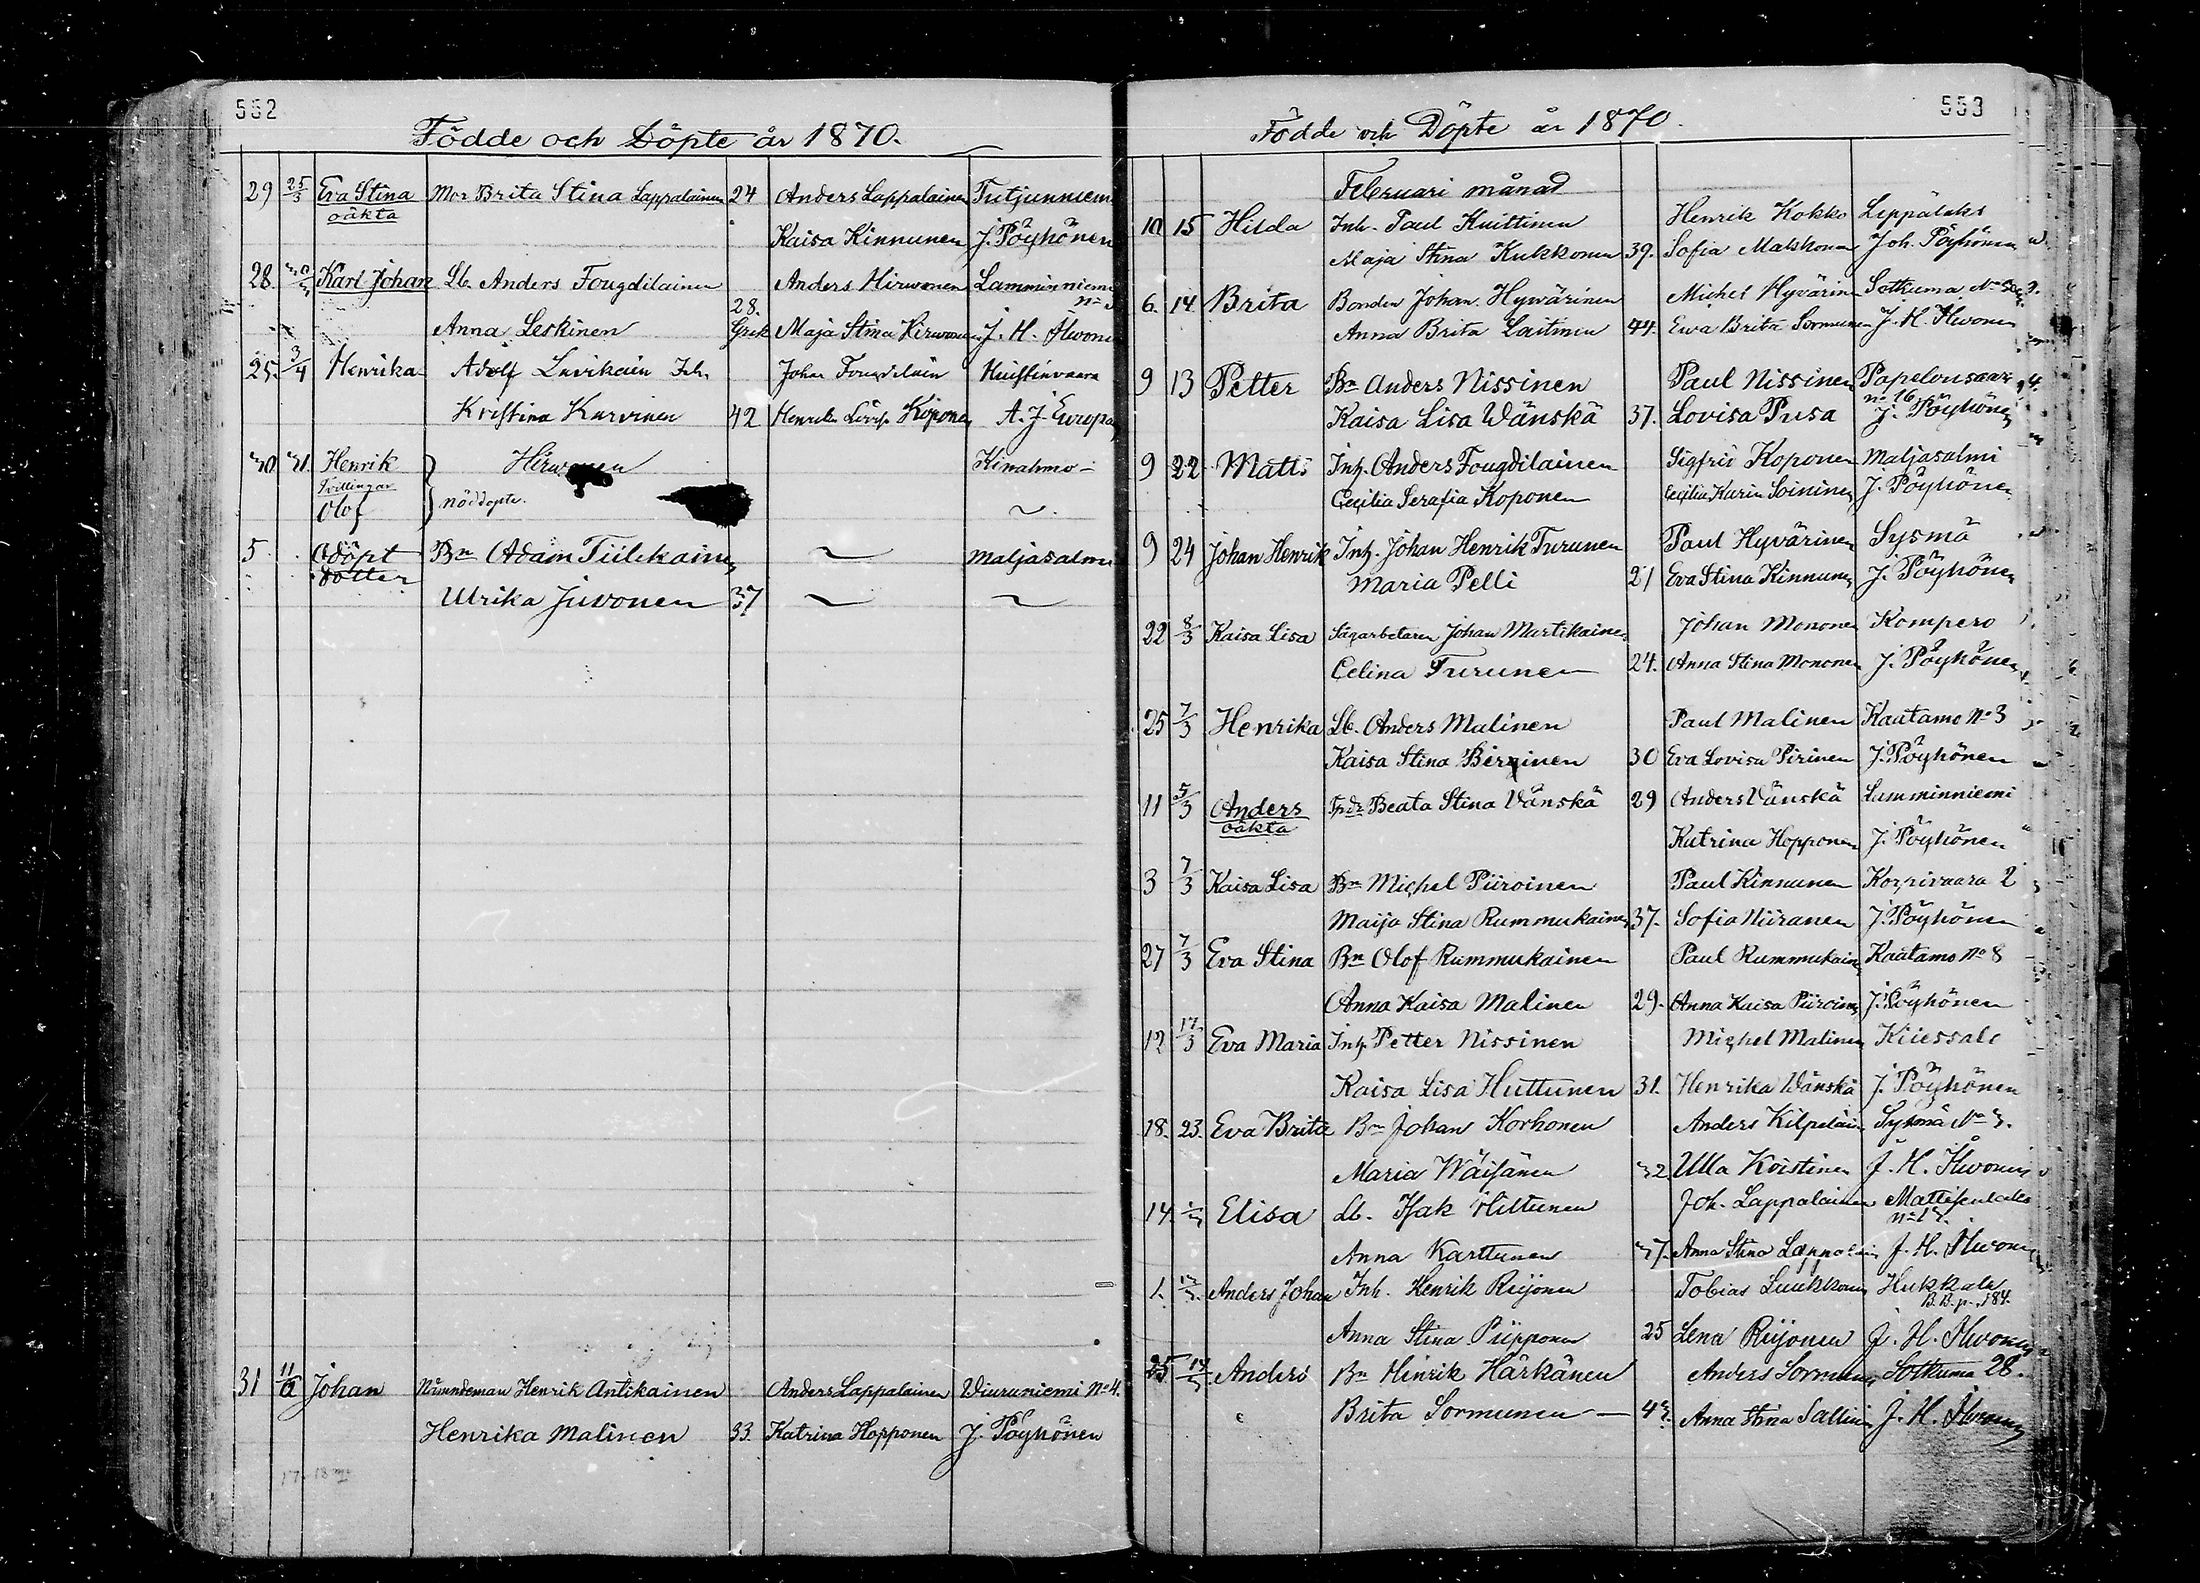 552
Födde och Döpte år 1870.
29 25/3 Eva Stina Mor Brita Stina Lappalainen 24 Anders Lappalainen Tutjunniemi
oäkta
Kaisa Kinnunen J. Pöyhönen
28. Karl Johan Lb. Anders Fougdilainen Anders Hirwonen Lamminniemi
28.
Anna Leskinen Grek Maja Stina Hirwonen J. H. Ilwonen
25. 3/4 Henrika Adolf Lavikain Inh. Johan Fougdilain Kuistinvaara
Kristina Karvinen 42 Henrika Koponen A. J. Europa
Henrik Hirwonen Kinahmo
Tvillingar
Olof nöddopte.
5 Odöpt Bn Adam Tiilikainen Maljasalmi
dotter
Ulrika Juvonen 37
31 11/12 Johan Nämndeman Henrik Antikainen Anders Lappalainen Wiuruniemi No 4.
Henrika Malinen 33. Katrina Hopponen J. Pöyhönen
553
Födde och Döpte år 1870.
Februari månad
10 15 Hilda Inh. Paul Kuittinen Henrik Kokko Leppälaks
Maja Stina Kukkonen 39. Sofia Matskonen Joh. Pöyhönen
6. 14 Brita Bonden Johan Hyvärinen Michel Hyvärinen Sotkuma
Anna Brita Laitinen 44. Ewa Brita Sormunen J. H. Ilwonen
9 13 Petter Bn Anders Nissinen Paul Nissinen Papelonsaari
no 16
Kaisa Lisa Wänskä 37. Lovisa Pusa J. Pöyhönen
9 22 Matts Inh. Anders Fougdilainen Sigfrid Koponen Maljasalmi
Cecilia Serafia Koponen Cecilia Karin Soininen J. Pöyhönen
9 24 Johan Henrik Inh. Johan Henrik Turunen Paul Hyvärinen Sysmä
Maria Pelli 21 Eva Stina Kinnunen J. Pöyhönen
22 8/3 Kaisa Lisa Sågarbetaren Johan Martikainen Johan Mononen Kompero
Celina Turunen 24. Anna Stina Mononen J. Pöyhönen
25 7/3 Henrika Lb. Anders Malinen Paul Malinen Kaatamo No 3
Kaisa Stina Berginen 30 Eva Lovisa Pirinen J. Pöyhönen
11 5/3 Anders Beata Stina Vänskä 29 Anders Vänskä Lamminniemi
oäkta
Katrina Hopponen J. Pöyhönen
3 7/3 Kaisa Lisa Bn Michel Piiroinen Paul Kinnunen Korpivaara 2
Maija Stina Rummukainen 37. Sofia Niiranen J. Pöyhönen
27 7/3 Eva Stina Bn Olof Rummukainen Paul Rummukainen Kaatamo No 8
Anna Kaisa Malinen 29. Anna Kaisa Piiroinen J. Pöyhönen
12 17/3 Eva Maria Inh. Petter Nissinen Michel Malinen Kiiessalo
Kaisa Lisa Huttunen 31. Henrika Wänskä J. Pöyhönen
18. 23. Eva Brita Bn Johan Korhonen Anders Kilpeläin
Maria Wäisänen 32 Ulla Koistinen J. H. Ilwonen
14. Elisa Lb. Isak Hiltunen Joh. Lappalainen
Anna Karttunen 37. Anna Stina Lappalain J. H. Ilwonen
1. Anders Johan Inh. Henrik Riijonen Tobias Luukkonen Hukkala
B. B. p. 184.
Anna Stina Piipponen 25 Lena Riijonen J. H. Ilwonen
25 Anders Bn Hinrik Härkänen Anders Sormunen Sotkuma 28.
Brita Sormunen 43. Anna Stina Sallinen J. H. Ilwonen